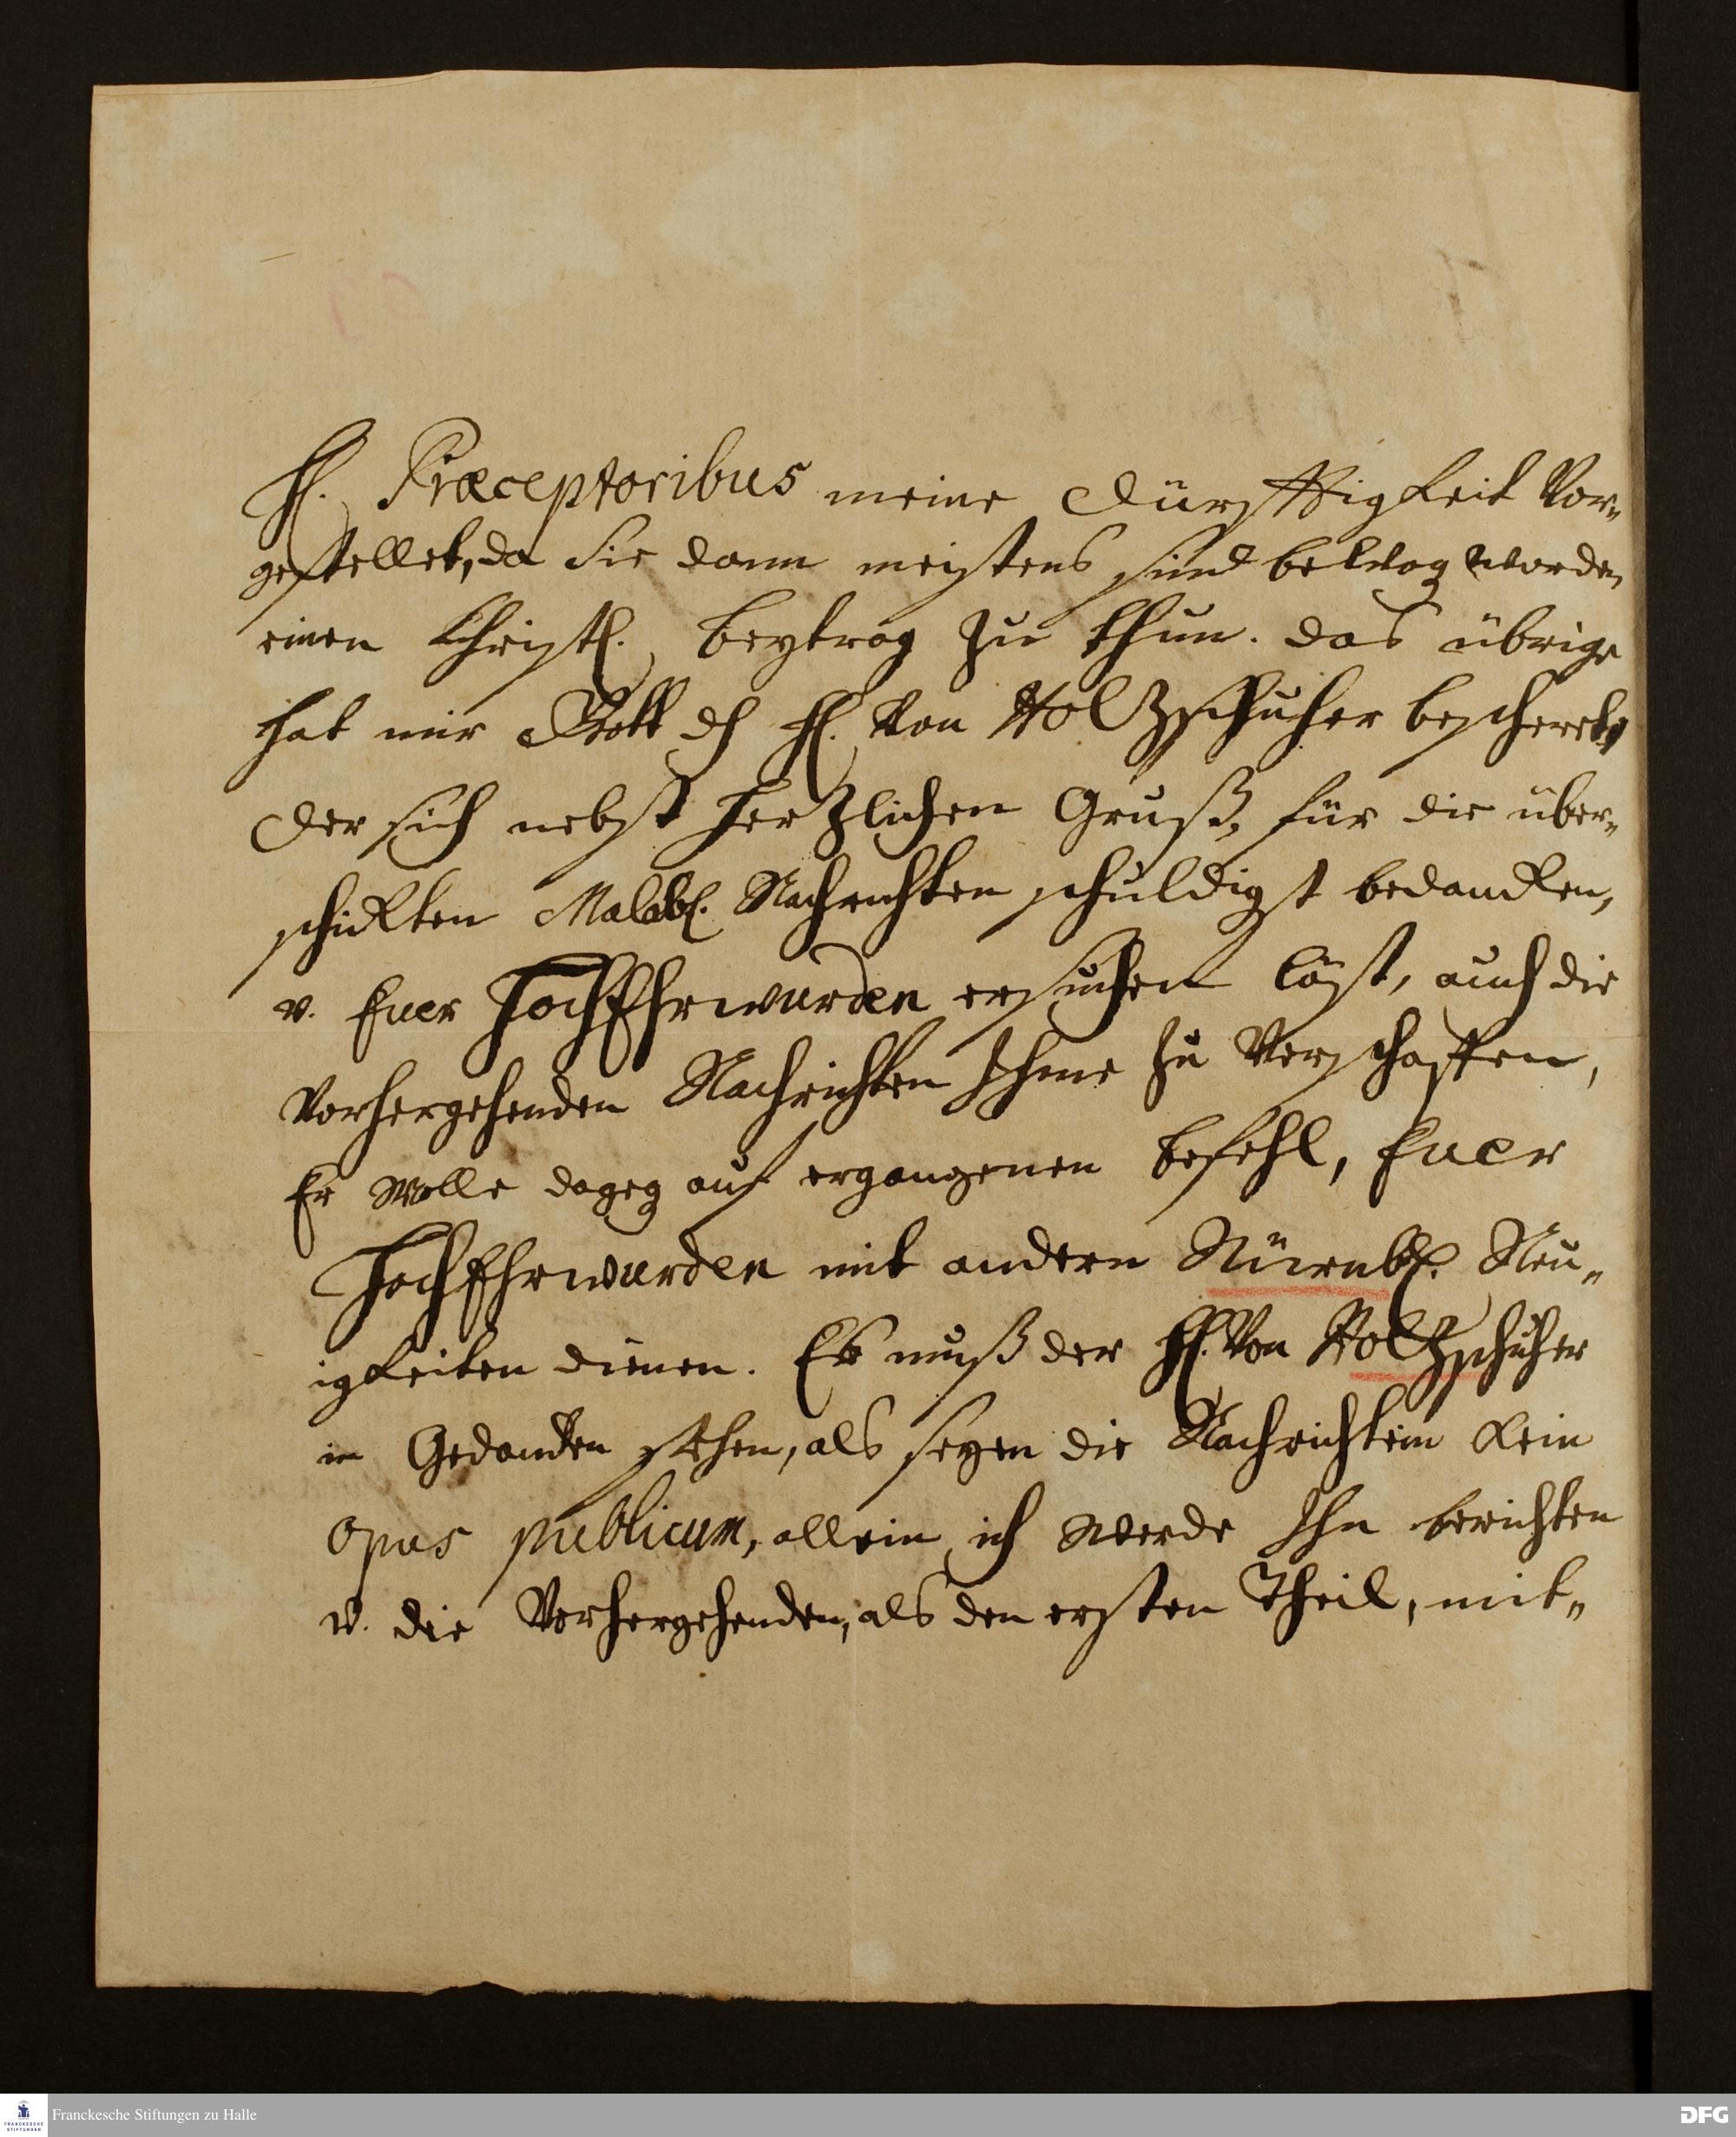 H. Præceptoribus meine Dürfftigkeit Vor„
gestellet, da Sie dann meistens sind bewog worden
einen Christl. beytrag zu thun. das übrige
hat mir Gott dh H. Von Holtzschuher bescheret,
der sich nebst hertzlichen Gruß, für die über„
schickten Malab. Nachrichten schuldigst bedancken,
v. Euer HochEhrwurden ersuchen läst, auch die
Vorhergehenden Nachrichten Ihme zu Verschaffen,
Er wolle dageg auf ergangenen befehl, Euer
HochEhrwurden mit andern Nürnb. Neu„
igkeiten dienen. Es muß der H. Von Holtzschuher
in Gedancken stehen, als seyen die Nachrichten kein
opus publicum, allein ich werde Ihn berichten
v. die Vorhergehenden, als den ersten Theil, mit„
Franckesche Stiftungen zu Halle
DFG